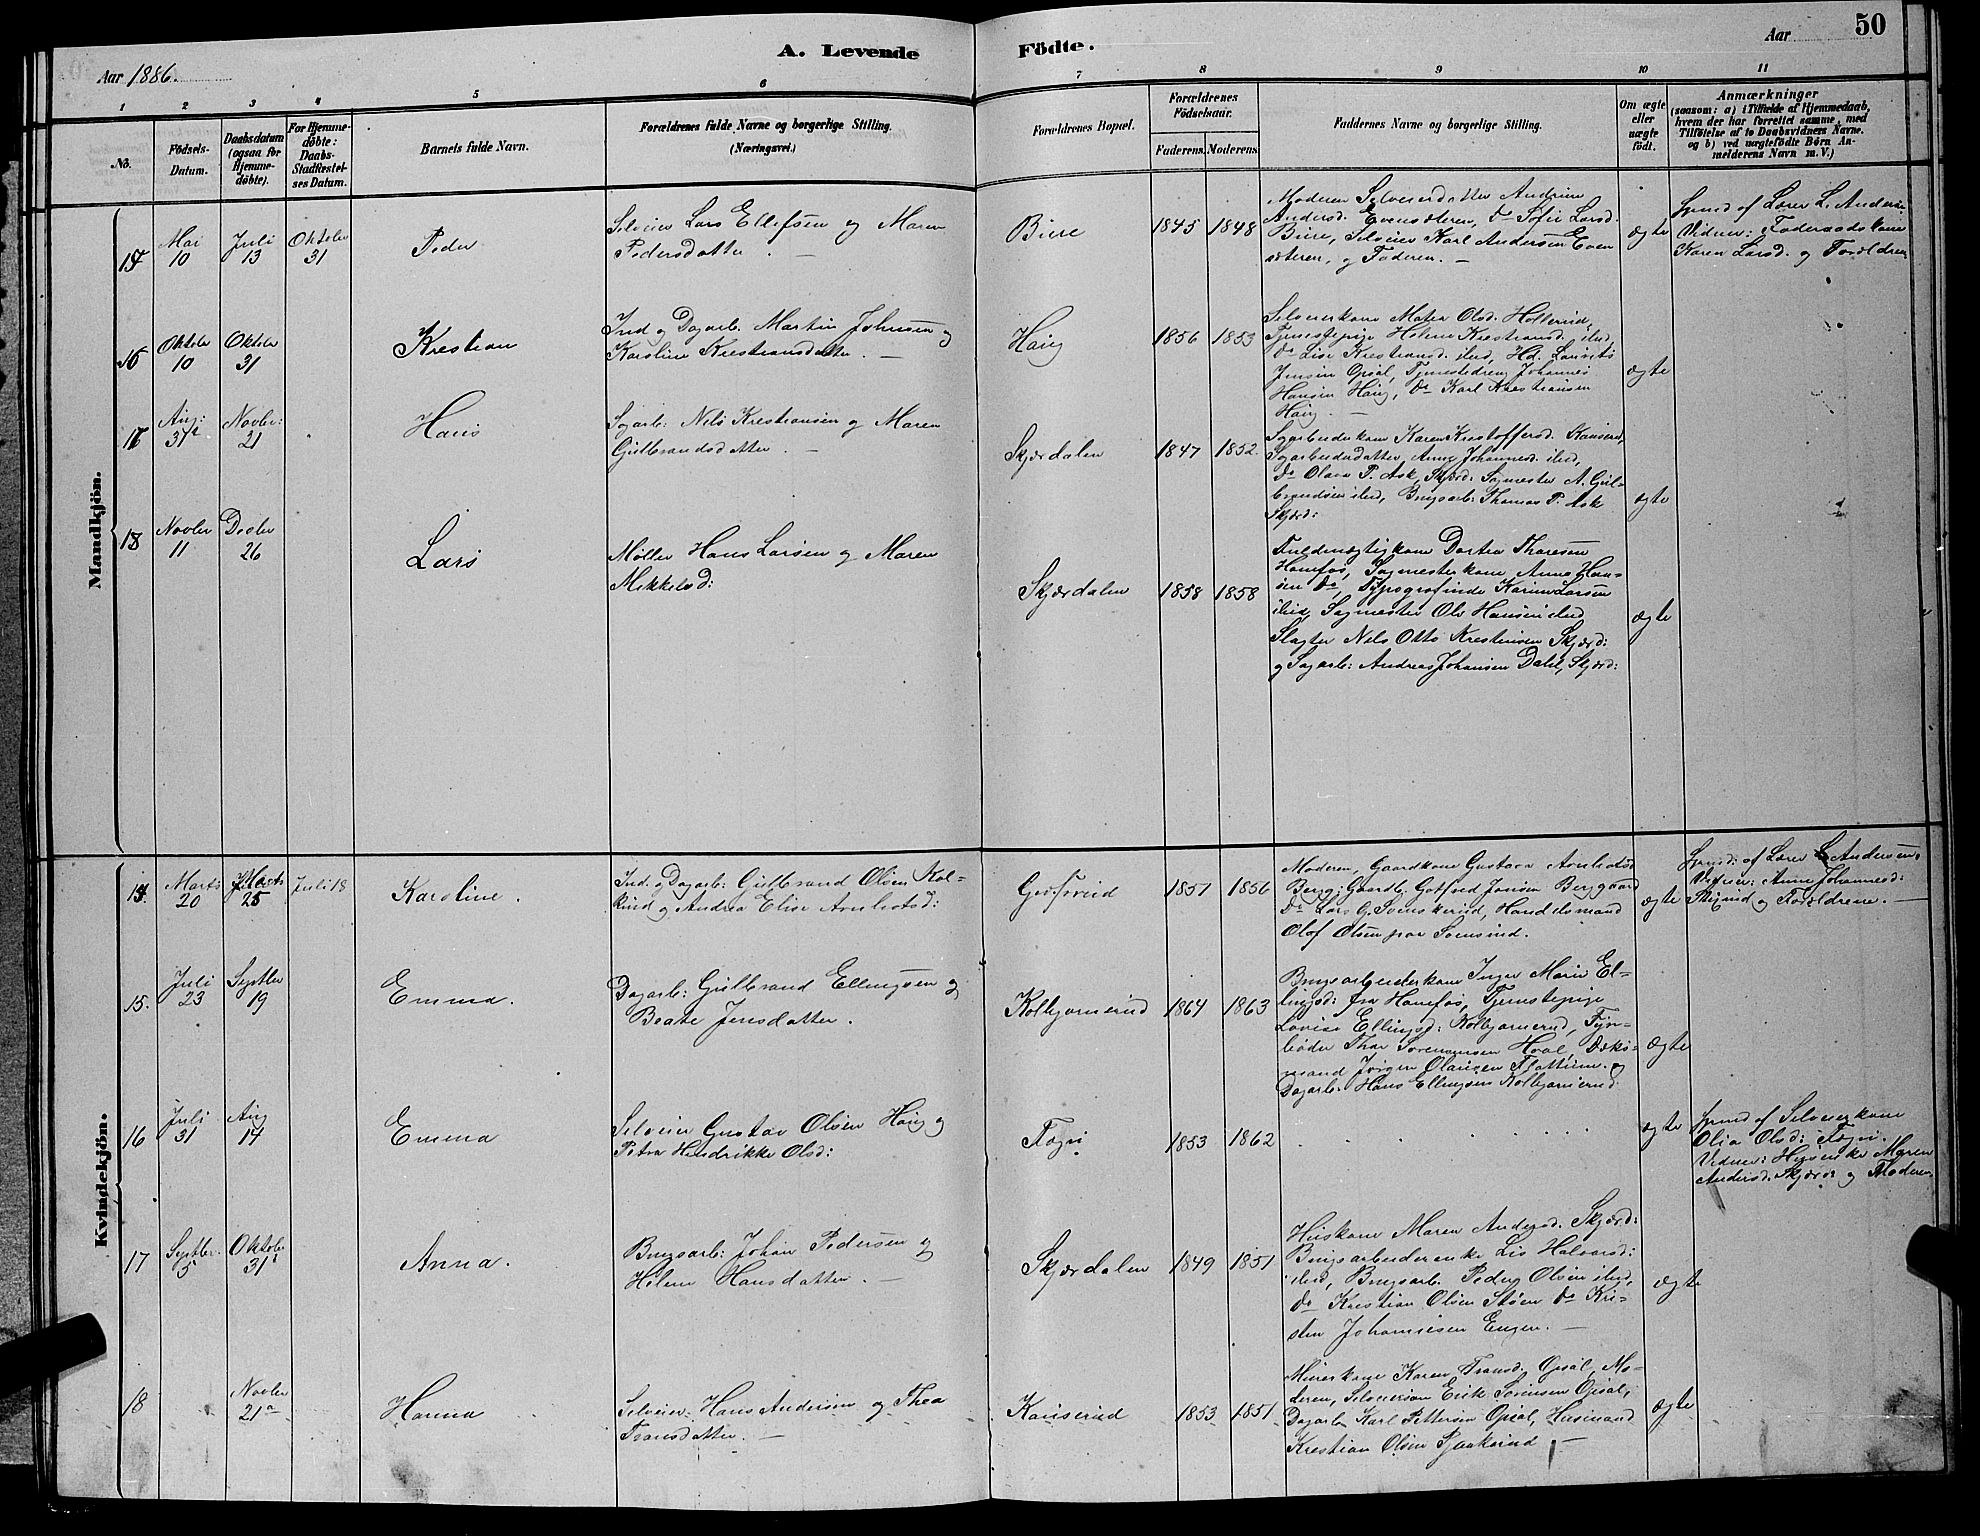 50
A. Levende Födte.
Aar 1886.
Aar
1 2 3 4 5 6 7 8 9 10 11
No.
Födsels-
Datum.
Daabsdatum
(ogsaa for
Hjemme-
döbte).
For Hjemme-
döbte:
Daabs-
Stadfæstel-
ses Datum.
Barnets fulde Navn.
Forældrenes fulde Navne og borgerlige Stilling.
(Næringsvei.)
Forældrenes Bopæl.
Forældrenes
Födselsaar.
Faderens. Moderens.
Faddernes Navne og borgerlige Stilling.
Om ægte
eller
uægte
født.
Anmærkninger
(saasom: a) i Tilfælde af Hjemmedaab,
hvem der har forrettet samme, med
Tilföielse af to Daabsvidners Navne.
og b) ved uægtefödte Börn An-
melderens Navn m. V.)
Mandkjön.
15
Mai
10
Juli
13
Oktober
31
Peder
Selveier Lars Ellefsen og Maren
Pedersdatter.
Biere
1845 1848
Moderen Selveierdatter Andrine
Andersd. Evensæteren, Do Sofie Larsd.
Biere, Selveier Karl Andersen Even
sæteren, og Faderen.
ægte
af Lærer L. Anders
Vidner: Føderaadskone
Karen Larsd. og Forældren
16
Oktober
10
Oktober
31
Krestian
Ind og Dagarb. Martin Johnsen og
Karoline Krestiansdatter.
Haug
1856 1853
Selveierkone Mathea Olsd. Hollerud,
Tjenestepige Helene Krestiansd. ibid
Do Lise Krestiansd. ibid, Hd. Lauritz
Jensen Opsal, Tjenestedreng Johannes
Hansen Haug, Do Karl Krestiansen
Haug.
ægte
17
Aug:
31
Novbr:
21
Hans
Sagarb: Nils Krestiansen og Maren
Gulbrandsdatter.
Skjærdalen
1847 1852.
Sagarbeiderkone Karen Kristoffersd. Kanserud,
Sagarbeiderdatter Anne Johannesd. ibid,
Do Olava P. Ask, Skjærd: Sagmester A. Gul-
brandsen ibid, Brugsarb: Thomas P. Ask
Skjærd:
ægte
18
Novber
11
Decber
26
Lars
Møller Hans Larsen og Maren
Mikkelsd:
Skjærdalen
1858 1858
Fuldmægtigkone Dortea Thoresen
Hønefos, Sagmesterkone Anne Han-
sen Do, Typografinde Karine Larsen
ibid, Sagmester Ole Hansen ibid
Slagter Nils Otto Krestiansen Skjærd:
og Sagarb: Andreas Johansen Dahl, Skjærd:
ægte
Kvindekjön.
14.
Marts
20
Marts
25
Juli 18
Karoline.
Ind. og Dagarb: Gulbrand Olsen Kol-
krud og Andrea Elise Arnbotsd:
1851 1856
Moderen, Gaardkone Gustava Arnbotsd
Berg: Gaardbr. Gotfred Jonsen Berggaard
Do Lars G. Svenskerud, Handelsmand
Olof Olsen paa Sonerud.
ægte
af Lærer L. Andersen,
Vidner: Anne Johannesd:
og Forældrene.
15.
Juli
23
Septber
19
Emma.
Dagarb: Gulbrand Ellingsen og
Beate Jensdatter.
Kolbjørnerud
1864 1863
Brugsarbeiderkone Inger Marie El-
lingsd: fra Hønefos, Tjenestepige
Lovise Ellingsd: Kolbjørnerud, Fyr-
bøder Thor Sørensen Hval, Dæks-
mand Jørgen Olausen Flattum. og
Dagarb. Hans Ellingsen Kolbjørnerud.
Ægte
16
Juli
31
Aug
14
Emma
Selveier Gustav Olsen Haug og
Petra Hendrikke Olsd:
Fægri
1853 1862
ægte
af Selveierkone
Olia Olsd: Fægri.
Vidner: Huusenke Maren
Andersd. Skjærd: og Moderen
17
Septber.
5
Oktober
31
Anna.
Brugsarb: Johan Pedersen og
Helene Hansdatter.
Skjærdalen
1849 1851
Huskone Maren Andersd. Skjærd:
Brugsarbeiderenke Lis Halvorsd:
ibid, Brugsarb. Peder Olsen ibid,
do Krestian Olsen Støen do Kri-
sten Johannesen Engen.
ægte
18
Novber
21
Hanna
Selveier Hans Andersen og Thea
Fransdatter.
Kanserud
1853 1851
Murerkone Karen Fransd. Opsal, Mo-
deren, Selveiersøn Erik Sørensen Opsal,
Dagarb Karl Pettersen Opsal, Husmand
Krestian Olsen
ægte